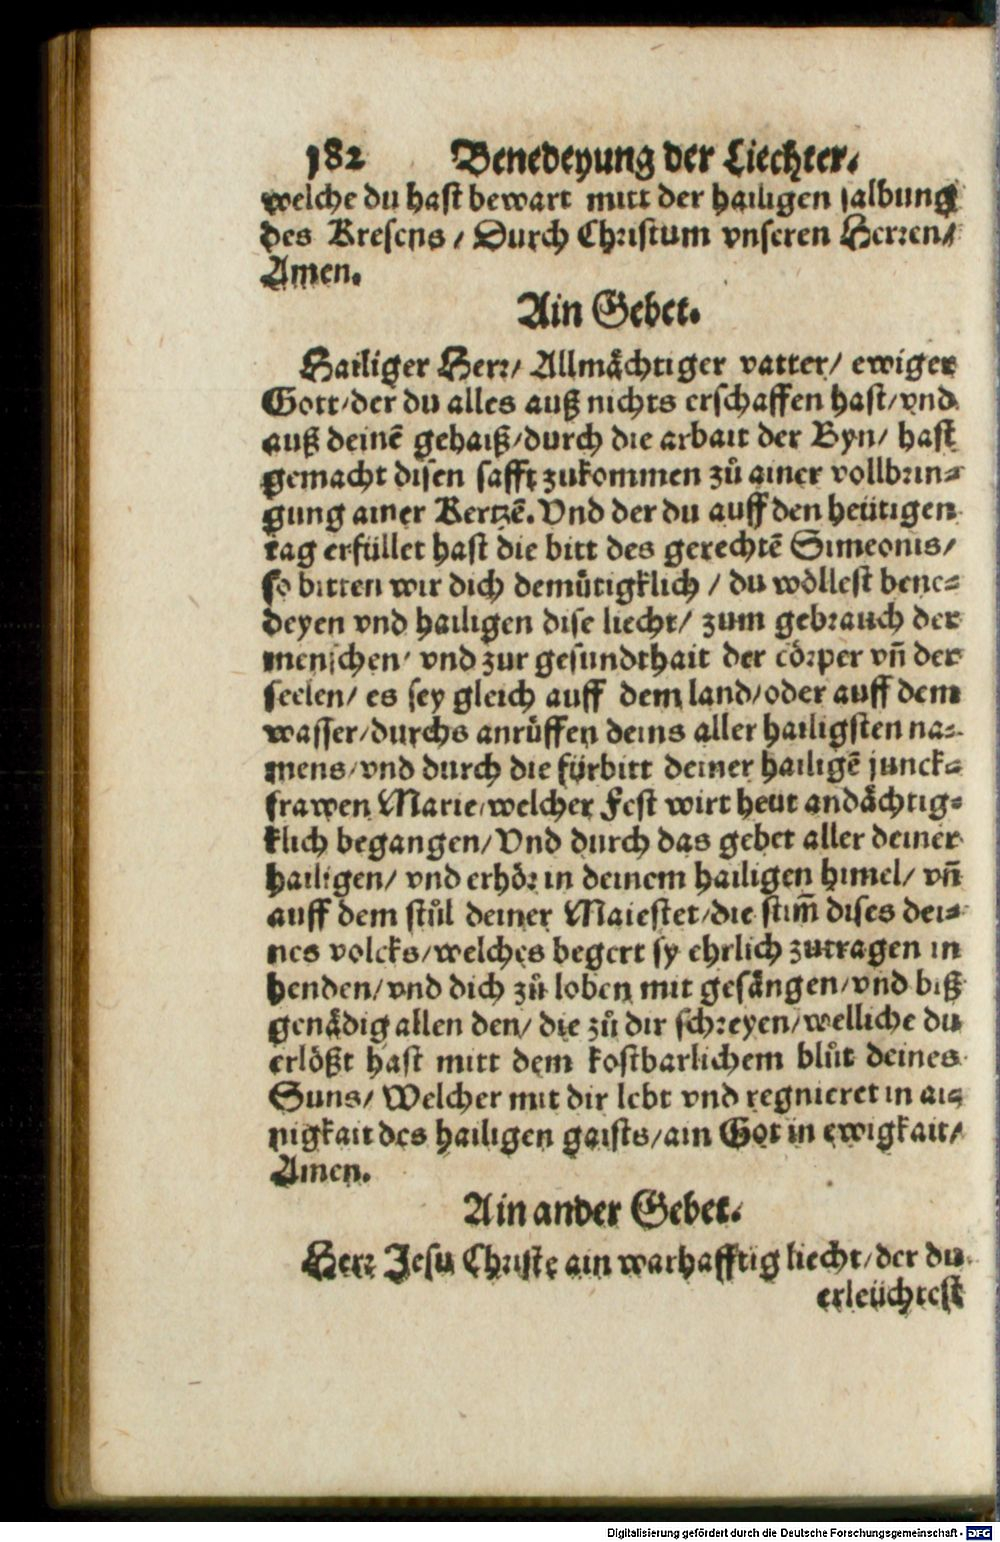 182 Benedeyung der Liechter.
welche du hast bewart mitt der hailigen salbung
des Kresens / Durch Christum vnseren Herren/
Amen.
Ain Gebet.
Hailiger Herr/ Allmächtiger vatter/ ewiger
Gott/der du alles auß nichts erschaffen hast/vnd
auß deinē gehaiß/durch die arbait der Byn/ hast
gemacht disen safft zukommen zů ainer vollbrin-
gung ainer Kertzē. Vnd der du auff den heütigen
tag erfüllet hast die bitt des gerechtē Simeonis/
so bitten wir dich demůtigklich / du wöllest bene-
deyen vnd hailigen dise liecht/ zum gebrauch der
menschen/ vnd zur gesundthait der cörper vñ der
seelen/ es sey gleich auff dem land/oder auff dem
wasser/durchs anrůffen deins aller hailigsten na-
mens/vnd durch die fürbitt deiner hailigē junck-
frawen Marie/welcher Fest wirt heut andächtig-
klich begangen/ Vnd durch das gebet aller deiner
hailigen/ vnd erhör in deinem hailigen himel/ vñ
auff dem stůl deiner Maiestet/die stim̄ dises dei-
nes volcks/welches begert sy ehrlich zutragen in
henden/vnd dich zů loben mit gesängen/vnd biß
genädig allen den/ die zů dir schreyen/welliche du
erlößt hast mitt dem kostbarlichem blůt deines
Suns/ Welcher mit dir lebt vnd regnieret in ai-
nigkait des hailigen gaists/ain Got in ewigkait/
Amen.
Ain ander Gebet.
Herr Jesu Christe ain warhafftig liecht/der du
erleüchtest
Digitalisierung gefördert durch die Deutsche Forschungsgemeinschaft - DFG